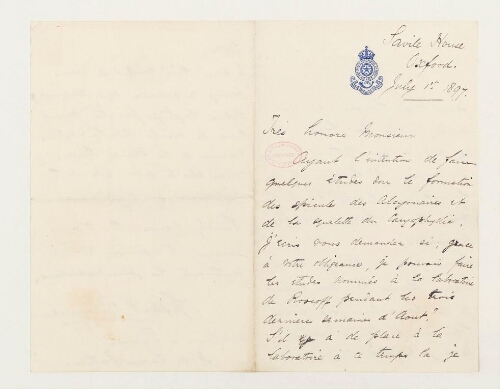 Savile House
Oxford.
July 1st 1897.
Très honoré Monsieur
Ayant l'intention de faire
quelques études sur la formation
des spicules des Alcyonaires et
de la squelette du Caryophyllia,
j'écris vous demander si, grace
à votre obligeance, je pourrais faire
les études nommés à la laboratoire
de Roscoff pendant les trois
dernière semaines d'Aout?
S'il y a de place à la
laboratoire à ce temps là je